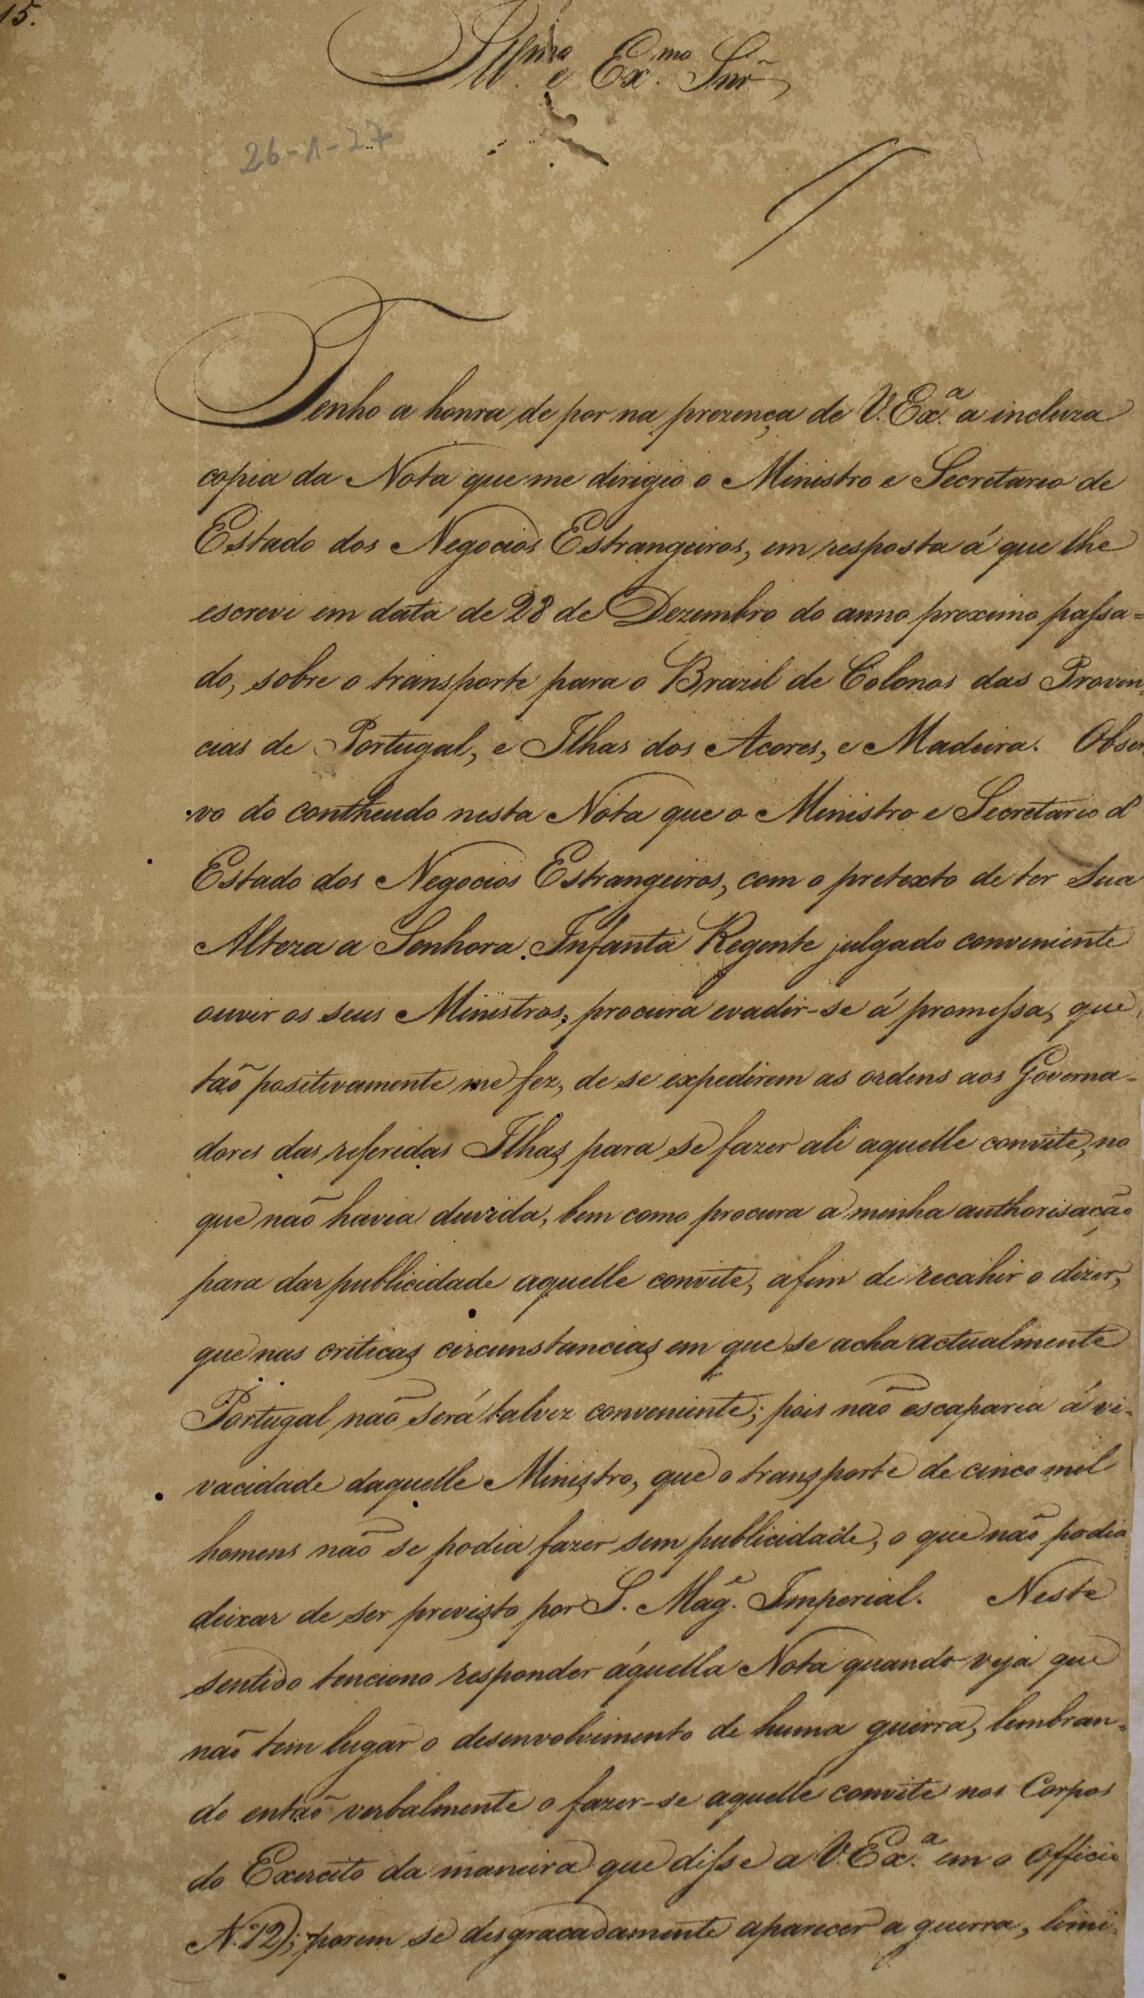 15.
Illmo e Ex.mo Snr.
26-1-27
Tenho a honra de por na prezença de V. Ex.a a incluza
copia da Nota que me dirigio o Ministro e Secretario de
Estado dos Negocios Estrangeiros, em resposta á que lhe
escrevi em data de 28 de Dezembro do anno proximo passa=
do, sobre o transporte para o Brazil de Colonos das Provin,
cias de Portugal, e Ilhas dos Acores, e Madeira. Obser
vo do contheudo nesta Nota que o Ministro e Secretario d
Estado dos Negocios Estrangeiros, com o pretexto de ter Sua
Alteza a Senhora Infanta Regente julgado conveniente
ouvir os seus Ministros, procura evadir-se á promessa, que
tão positivamente me fez, de se expedirem as ordens aos Governa-
dores das referidas Ilhas para se fazer ali aquelle convite, no
que não havia duvida, bem como procura a minha authorisação
para dar publicidade aquelle convite, afim de recahir o dizer,
que nas criticas circunstancias em que se acha actualmente
Portugal não será talvez conveniente; pois não escaparia á vi-
vacidade daquelle Ministro, que o transporte de cinco mil
homens não se podia fazer sem publicidade, o que não podia
deixar de ser previsto por S. Mag.e Imperial. Neste
sentido tenciono responder áquella Nota quando veja que
não tem lugar o desenvolvimento de huma guerra, lembran-
do então verbalmente o fazer-se aquelle convite nos Corpos
do Exercito da maneira que disse a V. Ex.a em o Officio
N.º 12); porem se desgracadamente aparecer a guerra, limi-